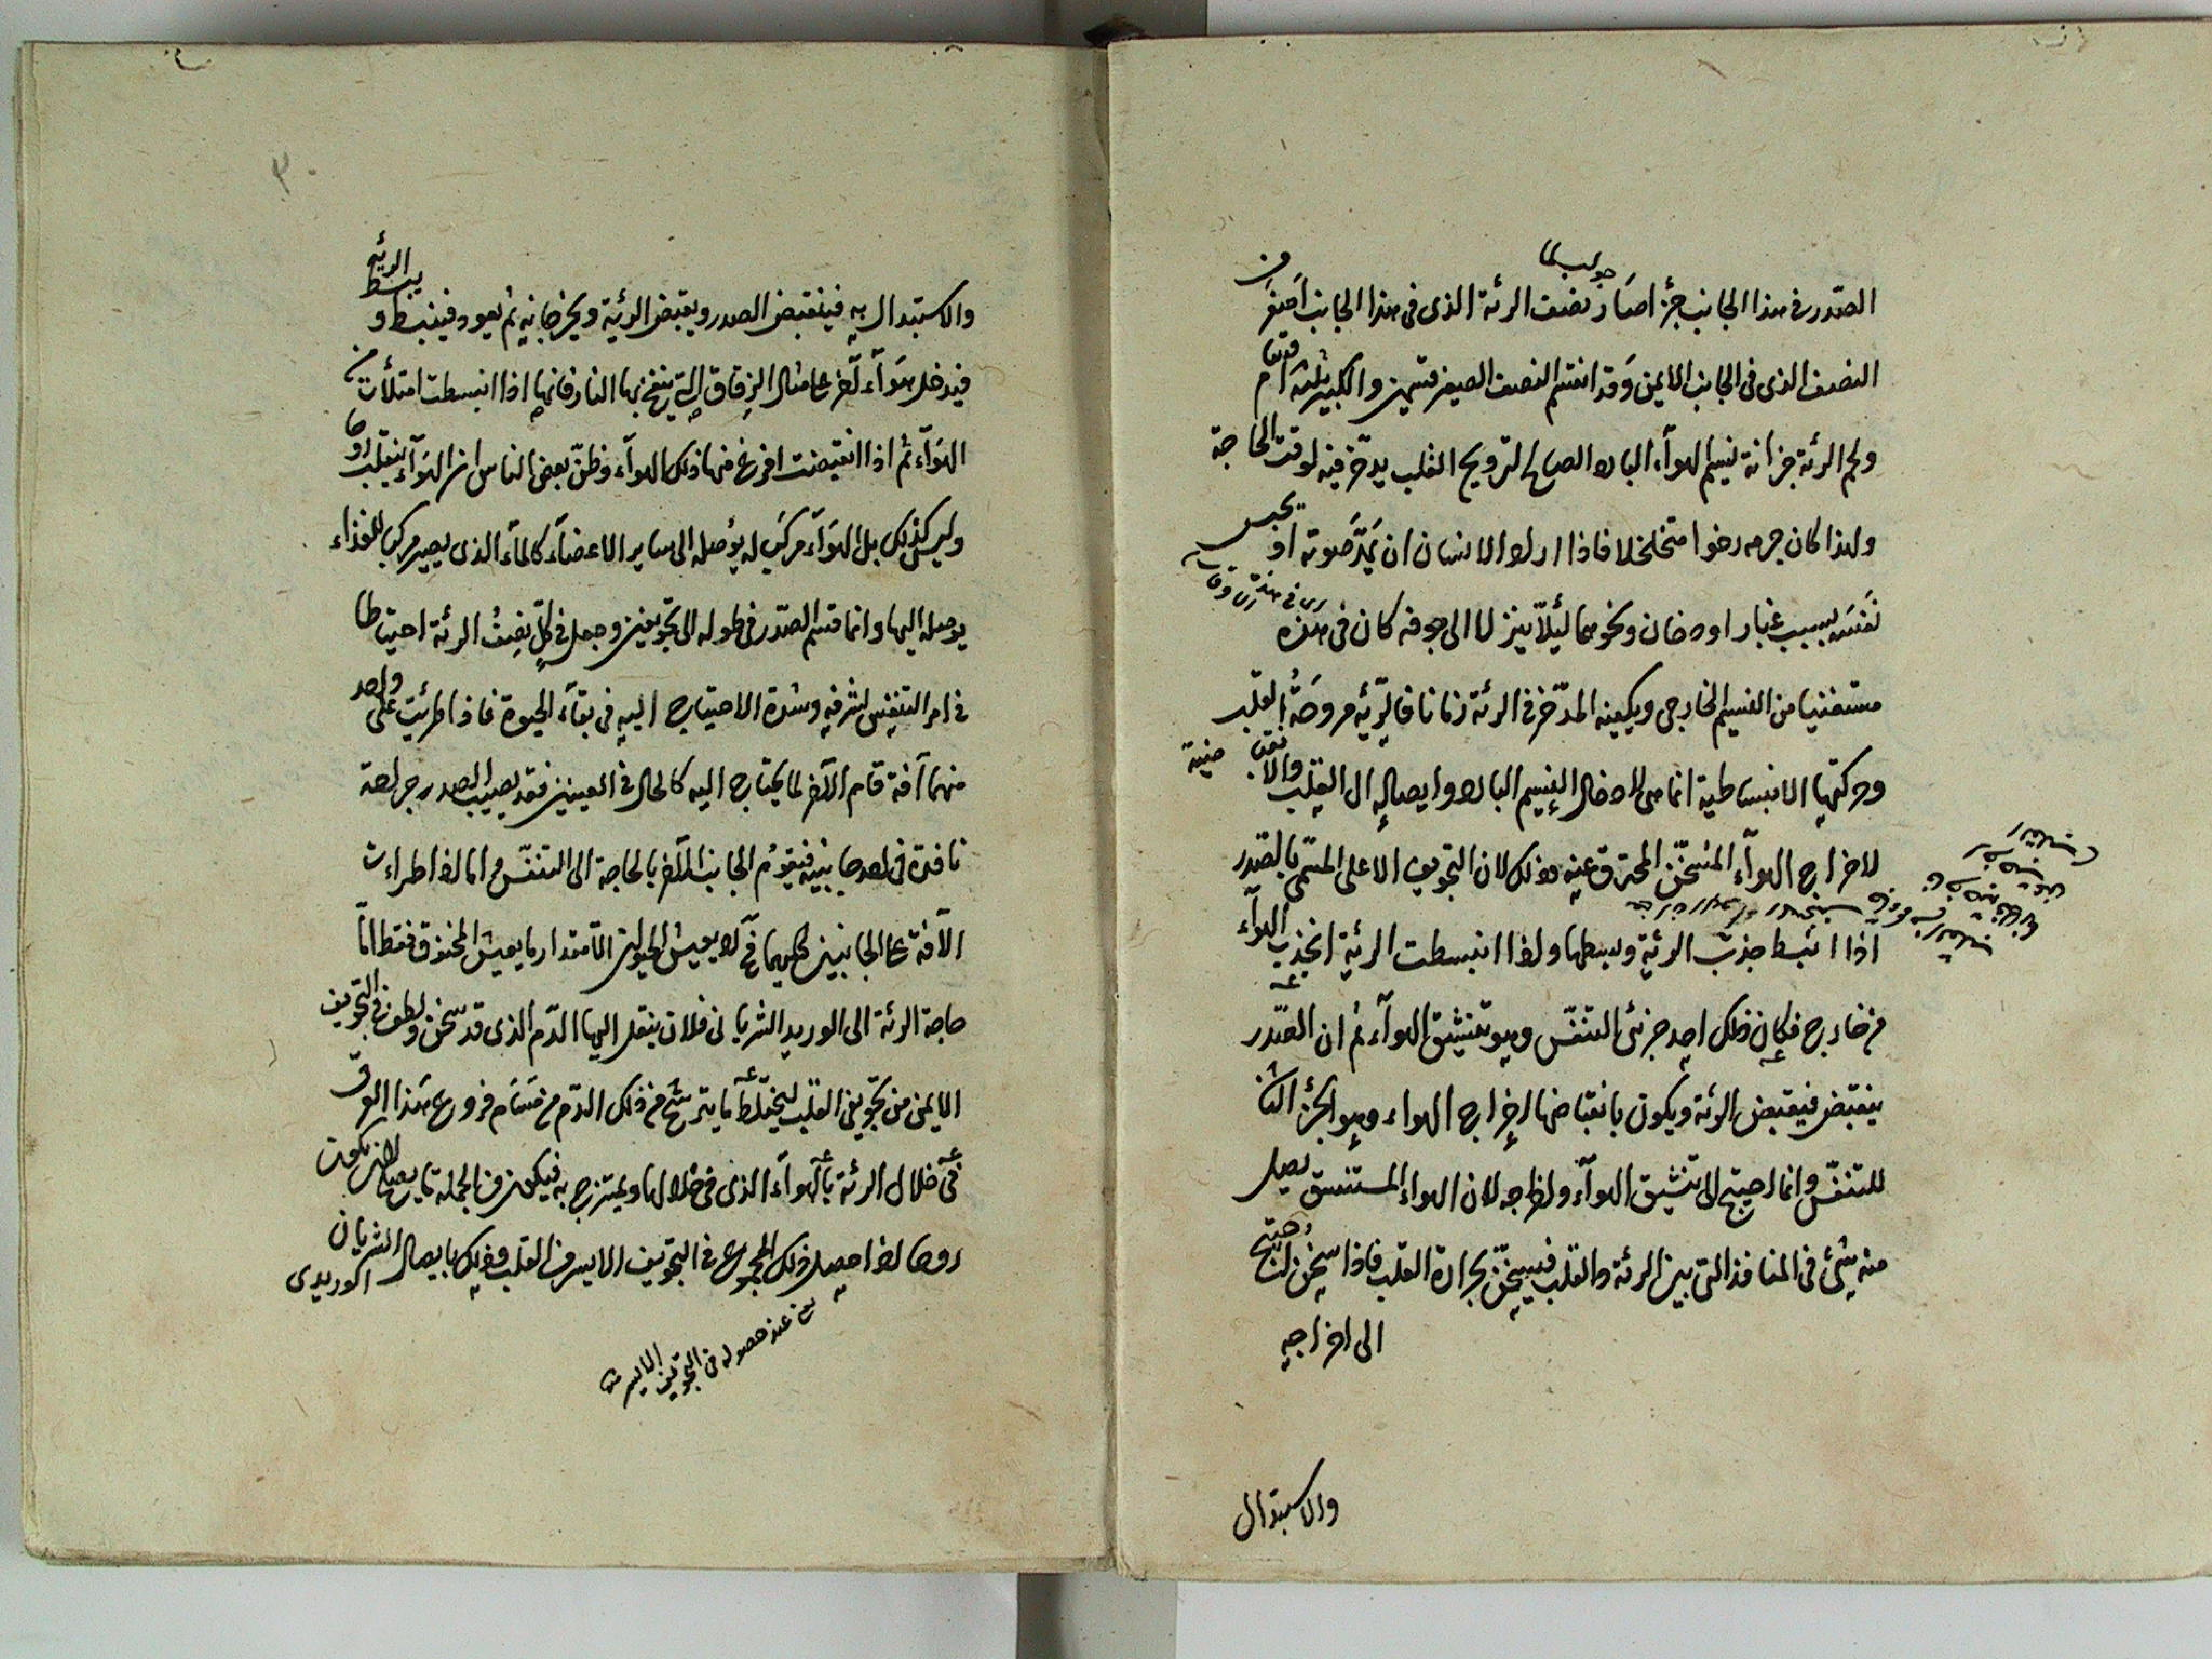 الصدر في هذا الجانب جزءا صار نصف الرئة الذى فى هذا الجانب اصغر من
جواب لما
النصف الذى فى الجانب الايمن وقد انقسم النصف الصغير قسمين والكبير ثلثة اقسام
ولحم الرئة خزانة لنسيم الهوآء البارد الصالح لترويح القلب يدخر فيه لوقت الحاجة
ولهذا كان جرمه رخوا متخلخلا فاذا اراد الانسان ان يمدّ صوته او يحبس
نفسه بسبب غبار او دخان ونحوهما لئلّا ينزلا الى جوفه كان فى هذه
مستغنيا من النسيم الخارجى ويكفيه المدّخر فى الرئة زمانا فالرّئه مروحة القلب
وحركتها الانبساطية انما هى لادخال النسيم البارد وايصاله الى القلب والانقباضية
لاخراج الهوآء المتسخّن المحترق عنه وذلك لان التجويف الاعلى المسمّى بالصدر
اذا انبسط جذب الرئة وبسطها واذا انبسطت الرئة انجذب الهوآء
من خارج فكان ذلك احد جزئى التنفّس وهو تنشيق الهوآء ثم ان الصّدر
ينقبض فيقبض الرئة ويكون بانقباضها اخراج الهواء وهو الجزء الثانى
للتنفّس وانما احتيج الى تنشيق الهوآء واخراجه لان الهواء المستنشق يصل
منه شئ فى المنافذ التى بين الرئة والقلب فيسخّن بحرارة القلب فاذا سخن احتيج
الى اخراجه
والاستبدال
٣٠
والاستبدال به فينقبض الصدر ويقبض الرئة ويخرجانه ثم يعود فينبسط ويبسط الرئة
فيدخل هوآء آخر على مثال الزقاق التى ينفخ بها النار فانها اذا انبسطت امتلأت من
الهوآء ثم اذا انقبضت افرغ منها ذلك الهوآء وظنّ بعض الناس ان الهوآء ينقلب روحا
وليس كذلك بل الهوآء مركب له يوصله الى ساير الاعضاء كالمآء الذى يصير مركبا للغذاء
يوصله اليها وانما قسم الصّدر فى طوله الى تجويفين وجعل فى كلّ نصف الرئة احتياطا
فى امر التنفس لشرفه وشدة الاحتياج اليه فى بقاء الحيوة فاذا طرئت على واحد
منهما آفة قام الآخر لما يحتاج اليه كالحال فى العينين فقد يصيب الصدر جراحة
نافذة فى احد جانبيه فيقوم الجانب الآخر بالحاجة الى التنفّس واما اذا طرأت
الآفة على الجانبين كليهما فح لا يعيش الحيوان الا مقدار ما يعيش المخنوق فقط امّا
حاجة الرئة الى الوريد الشريانى فلان ينقل اليها الدّم الذى قد سخن ولطف فى التجويف
الايمن من تجويفى القلب ليختلط ما يترشّح من ذلك الدّم من مسام فروع هذا العرق
فى خلال الرئة بالهوآء الذى فى خلالها ويمتزج به فيكون من الجملة ما يصلح لان يكون
روحا اذا حصل ذلك المجموع فى التجويف الايسر من القلب وذلك بايصال الشريان الوريدى
عند حصوله فى التجويف الايسر